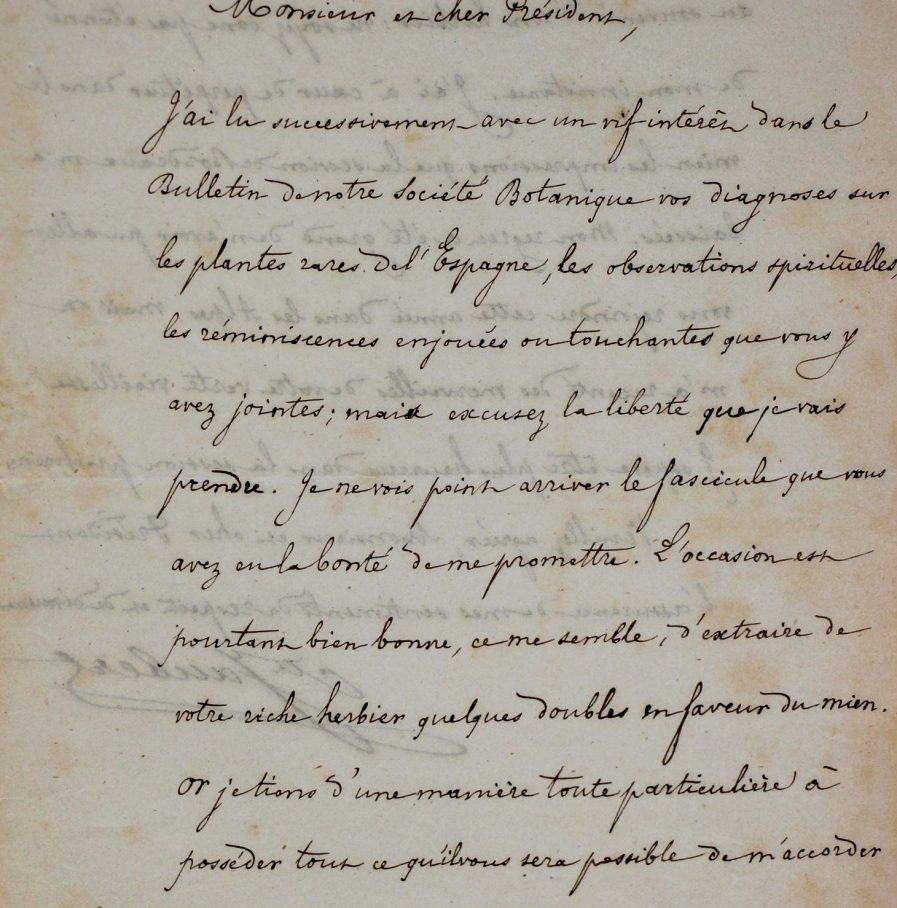 Monsieur et cher Président,
J'ai lu successivement avec un vif intérêt dans le
Bulletin de notre Société Botanique vos diagnoses sur
les plantes rares de l'Espagne, les observations spirituelles,
les réminiscences enjouées ou touchantes que vous y
avez jointes; mais excusez la liberté que je vais
prendre. Je ne vois point arriver le fascicule que vous
avez eu la bonté de me promettre. L'occasion est
pourtant bien bonne, ce me semble, d'extraire de
votre riche herbier quelques doubles en faveur du mien.
Or je tiens d'une manière toute particulière à
posséder tout ce qu'il vous sera possible de m'accorder